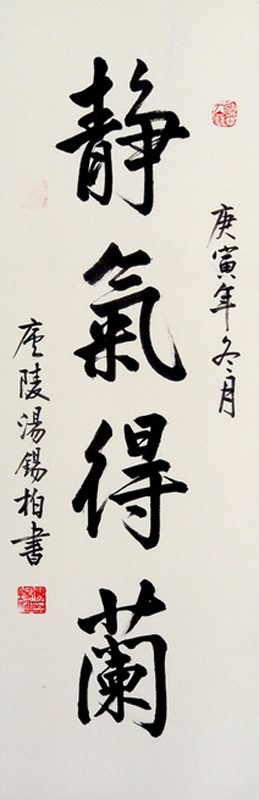 庚寅年冬月
靜氣得蘭
庐陵湯錫柏書